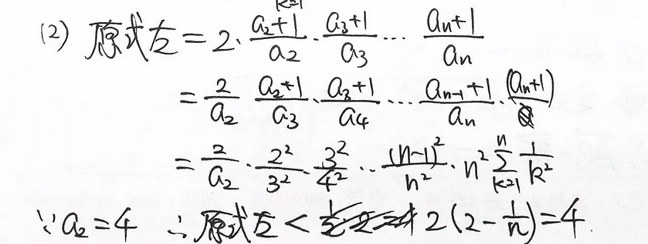 k=1
(2) 原式左 = 2·\frac{a_2+1}{a_2}·\frac{a_3+1}{a_3}…\frac{a_n+1}{a_n}
= \frac{2}{a_2}·\frac{a_2+1}{a_3}·\frac{a_3+1}{a_4}…\frac{a_{n-1}+1}{a_n}·(a_n+1)
= \frac{2}{a_2}·\frac{2^2}{3^2}·\frac{3^2}{4^2}…\frac{(n-1)^2}{n^2}·n^2\sum_{k=1}^{n}\frac{1}{k^2}
∵ a_2=4 ∴ 原式左 < 2(2-\frac{1}{n})=4.